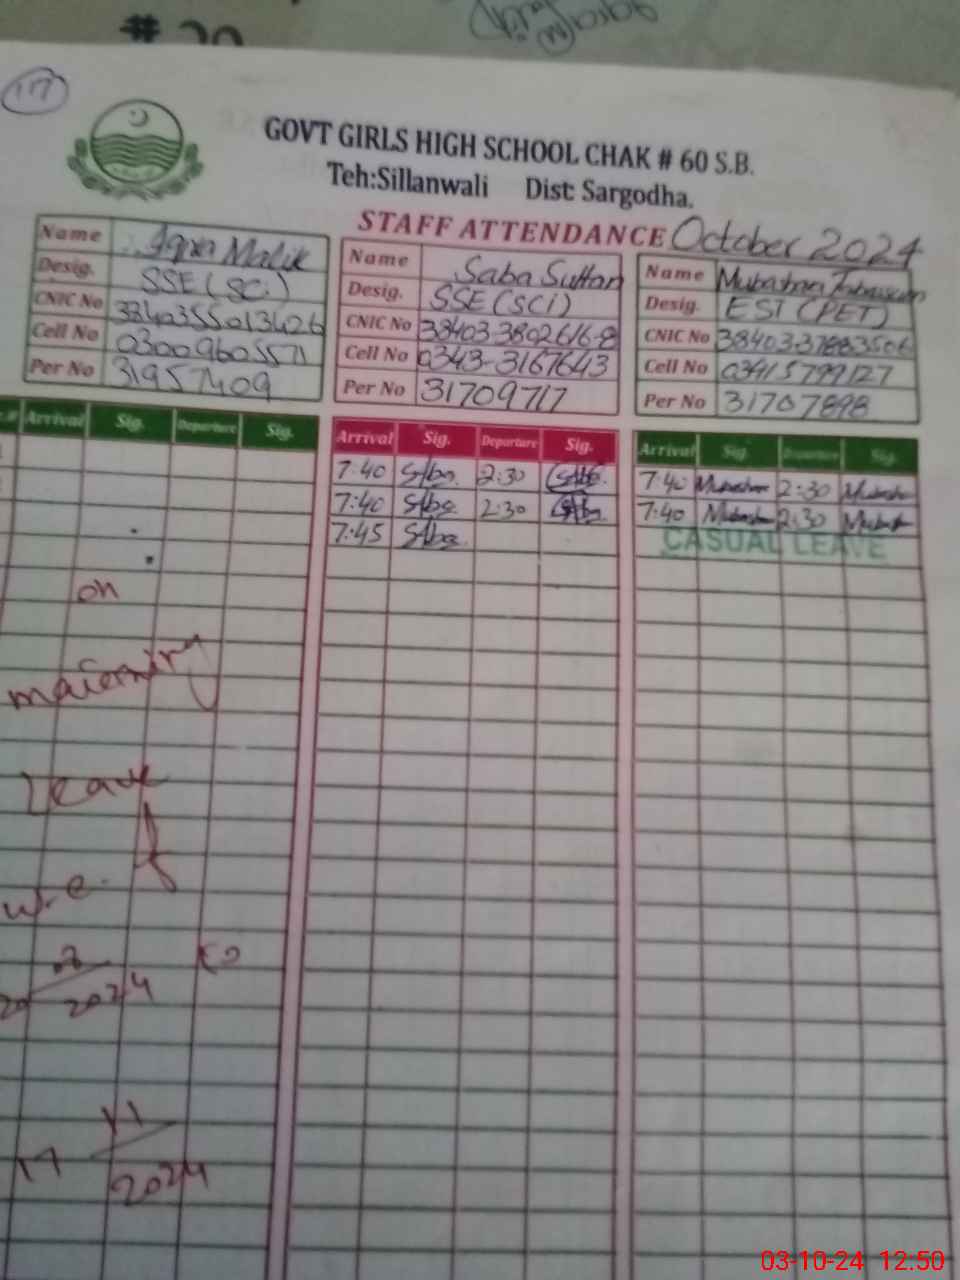 117
GOVT GIRLS HIGH SCHOOL CHAK # 60 S.B.
Teh:Sillanwali Dist: Sargodha.
STAFF ATTENDANCE October 2024
Name Iqra Malik
Desig. SSE (SCi)
CNIC No 3840355013426
Cell No 03009605571
Per No 31957409
Arrival Sig. Departure Sig.
on
Leave
w.e.f
2024 to
17 11
2024
Name Saba Sultan
Desig. SSE (SCi)
CNIC No 38403-3802616-8
Cell No 0343-3167643
Per No 31709717
Arrival Sig. Departure Sig.
7:40 Saba 2:30 Saba
7:40 Saba 2:30 Saba
7:45 Saba
Name Mubashra
Desig. EST (PET)
CNIC No
Cell No 03415799127
Per No 31707898
Arrival Sig. Departure Sig.
7:40 Mubashra 2:30
7:40 Mubashra 2:30
CASUAL LEAVE
03-10-24 12.50